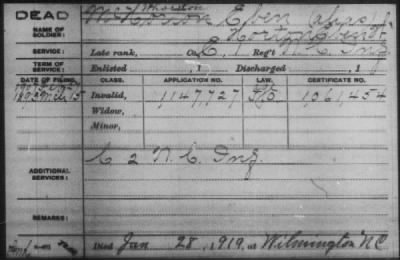 DEAD
NAME OF SOLDIER:
Eben alias
SERVICE:
Late rank, Co. E, 1 Reg't N.C. Inf.
TERM OF SERVICE:
Enlisted , 1 Discharged , 1
DATE OF FILING. CLASS. APPLICATION NO. LAW. CERTIFICATE NO.
Invalid, 1147,727 1061,454
Widow,
Minor,
ADDITIONAL SERVICES:
C 2 N.C. Inf.
REMARKS:
Died Jan 28, 1919, at Wilmington N.C.